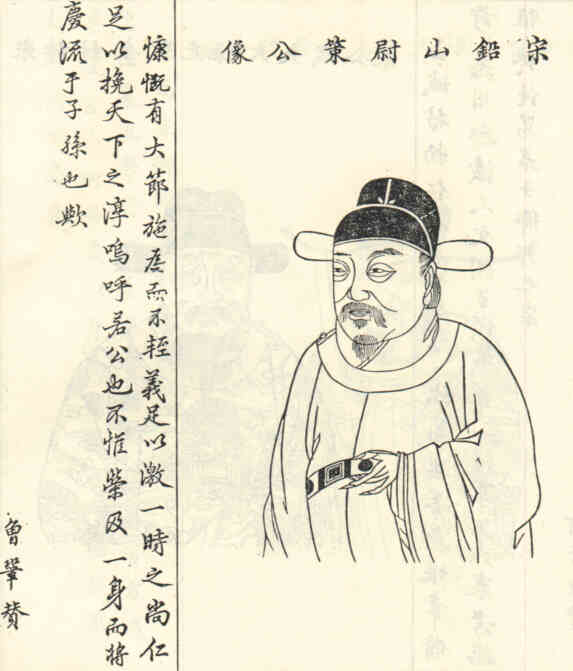 宋鉛山尉策公像
慷慨有大節施而不輕義足以激一時之尚仁
足以挽天下之淳嗚呼若公也不惟榮及一身而將
慶流于子孫也歟
曾鞏賛